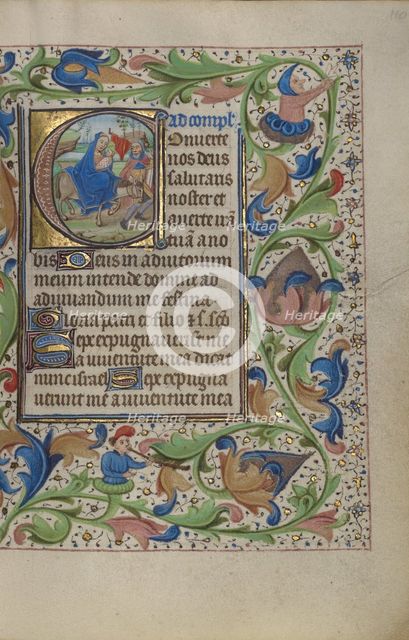 Ad compl
Onuerte
nos deus
salutaris
noster et
auerte irā
tuā a no
bis Deus in adiutorium
meum intende domine ad
adiuuandum me festina
Gloria patri et filio & s. sc̄i
Sepe expugnauerunt me
a iuuentute mea dicat
nunc israel Sepe expugna
uerunt me a iuuentute mea
Heritage
Images